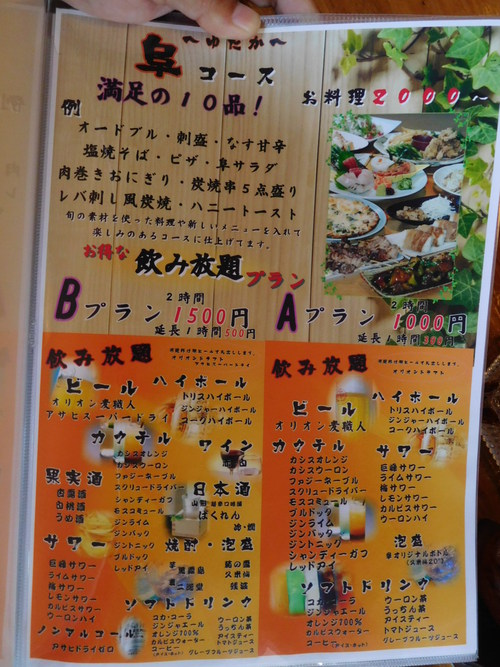 ～ゆたか～
阜コース
満足の10品！
お料理2000～
例
オードブル・刺盛・なす甘辛
塩焼そば・ピザ・阜サラダ
肉巻きおにぎり・炭焼串5点盛り
レバ刺し風炭焼・ハニートースト
旬の素材を使った料理や新しいメニューを入れて
楽しみのあるコースに仕上げてます。
お得な飲み放題プラン
2時間
Bプラン1500円
延長1時間500円
2時間
Aプラン1000円
延長1時間300円
飲み放題
ビール
オリオン麦職人
アサヒスーパードライ
ハイボール
トリスハイボール
ジンジャーハイボール
コークハイボール
カクテル
カシスオレンジ
カシスウーロン
ファジーネーブル
スクリュードライバー
シャンディーガフ
モスコミュール
ジンライム
ジンバック
ジントニック
ブルドック
レッドアイ
ワイン
果実酒
白桃酒
うめ酒
日本酒
ばくれん
サワー
巨峰サワー
ライムサワー
梅サワー
レモンサワー
カルピスサワー
ウーロンハイ
焼酎・泡盛
ノンアルコール
アサヒドライゼロ
ソフトドリンク
コカ・コーラ
ジンジャエール
オレンジ100%
カルピスウォーター
コーヒー
ウーロン茶
うっちん茶
アイスティー
トマトジュース
グレープフルーツジュース
飲み放題
ビール
オリオン麦職人
ハイボール
トリスハイボール
ジンジャーハイボール
コークハイボール
カクテル
カシスオレンジ
カシスウーロン
ファジーネーブル
スクリュードライバー
モスコミュール
ブルドック
ジンライム
ジンバック
ジントニック
シャンディーガフ
レッドアイ
サワー
巨峰サワー
ライムサワー
梅サワー
レモンサワー
カルピスサワー
ウーロンハイ
泡盛
ソフトドリンク
コカ・コーラ
ジンジャエール
オレンジ100%
カルピスウォーター
コーヒー
ウーロン茶
うっちん茶
アイスティー
トマトジュース
グレープフルーツジュース